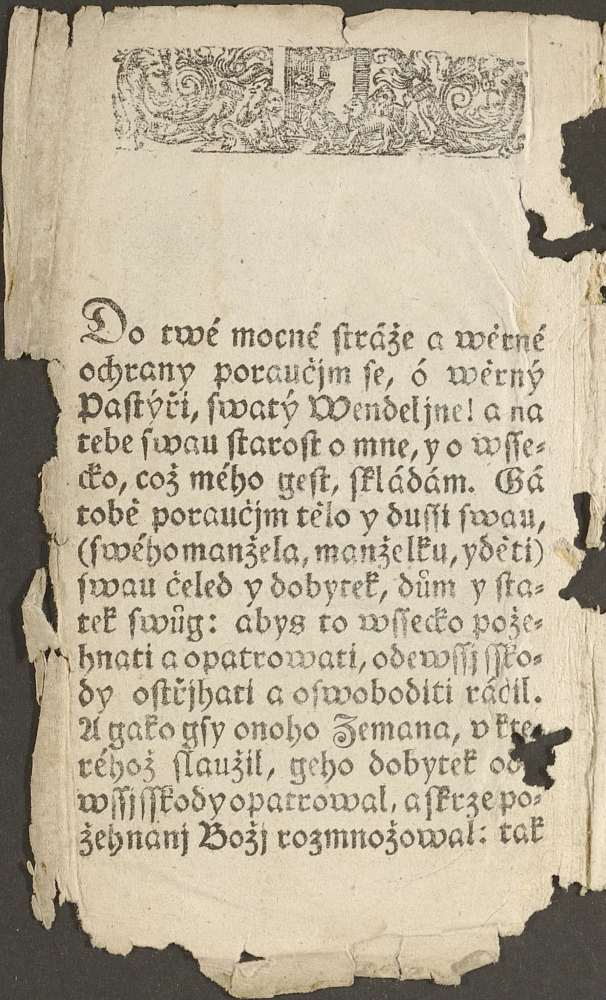 Do twé mocné ſtráže a wěrné
ochrany poraučjm ſe, ó wěrný
Paſtýři, ſwatý Wendeljne! a na
tebe ſwau ſtaroſt o mne, y o wſſe⸗
cko, což mého geſt, ſkládám. Gá
tobě poraučjm tělo y duſſi ſwau,
(ſwého manžela, manželku, y děti)
ſwau čeled y dobytek, dům y ſta⸗
tek ſwůg: abys to wſſecko pože⸗
hnati a opatrowati, ode wſſj ſſko⸗
dy oſtřjhati a oſwoboditi ráčil.
A gako gſy onoho Zemana, v kte⸗
réhož ſlaužil, geho dobytek
wſſj ſſkody opatrowal, a ſkrze po⸗
žehnanj Božj rozmnožowal: tak